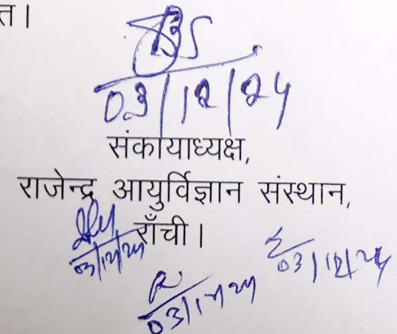 त।
03/12/24
संकायाध्यक्ष,
राजेन्द्र आयुर्विज्ञान संस्थान,
राँची।
03/12/24
03/12/24
03/12/24